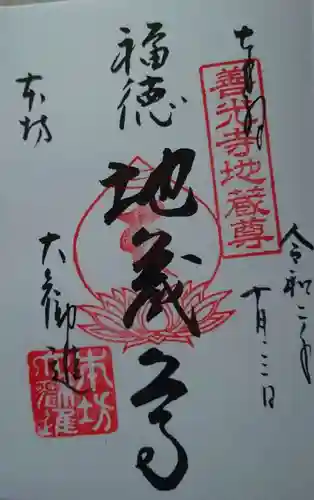 奉拝
善光寺地蔵尊
令和二年
十月二二日
福徳
地蔵尊
本坊
大勧進
本坊
大勧進